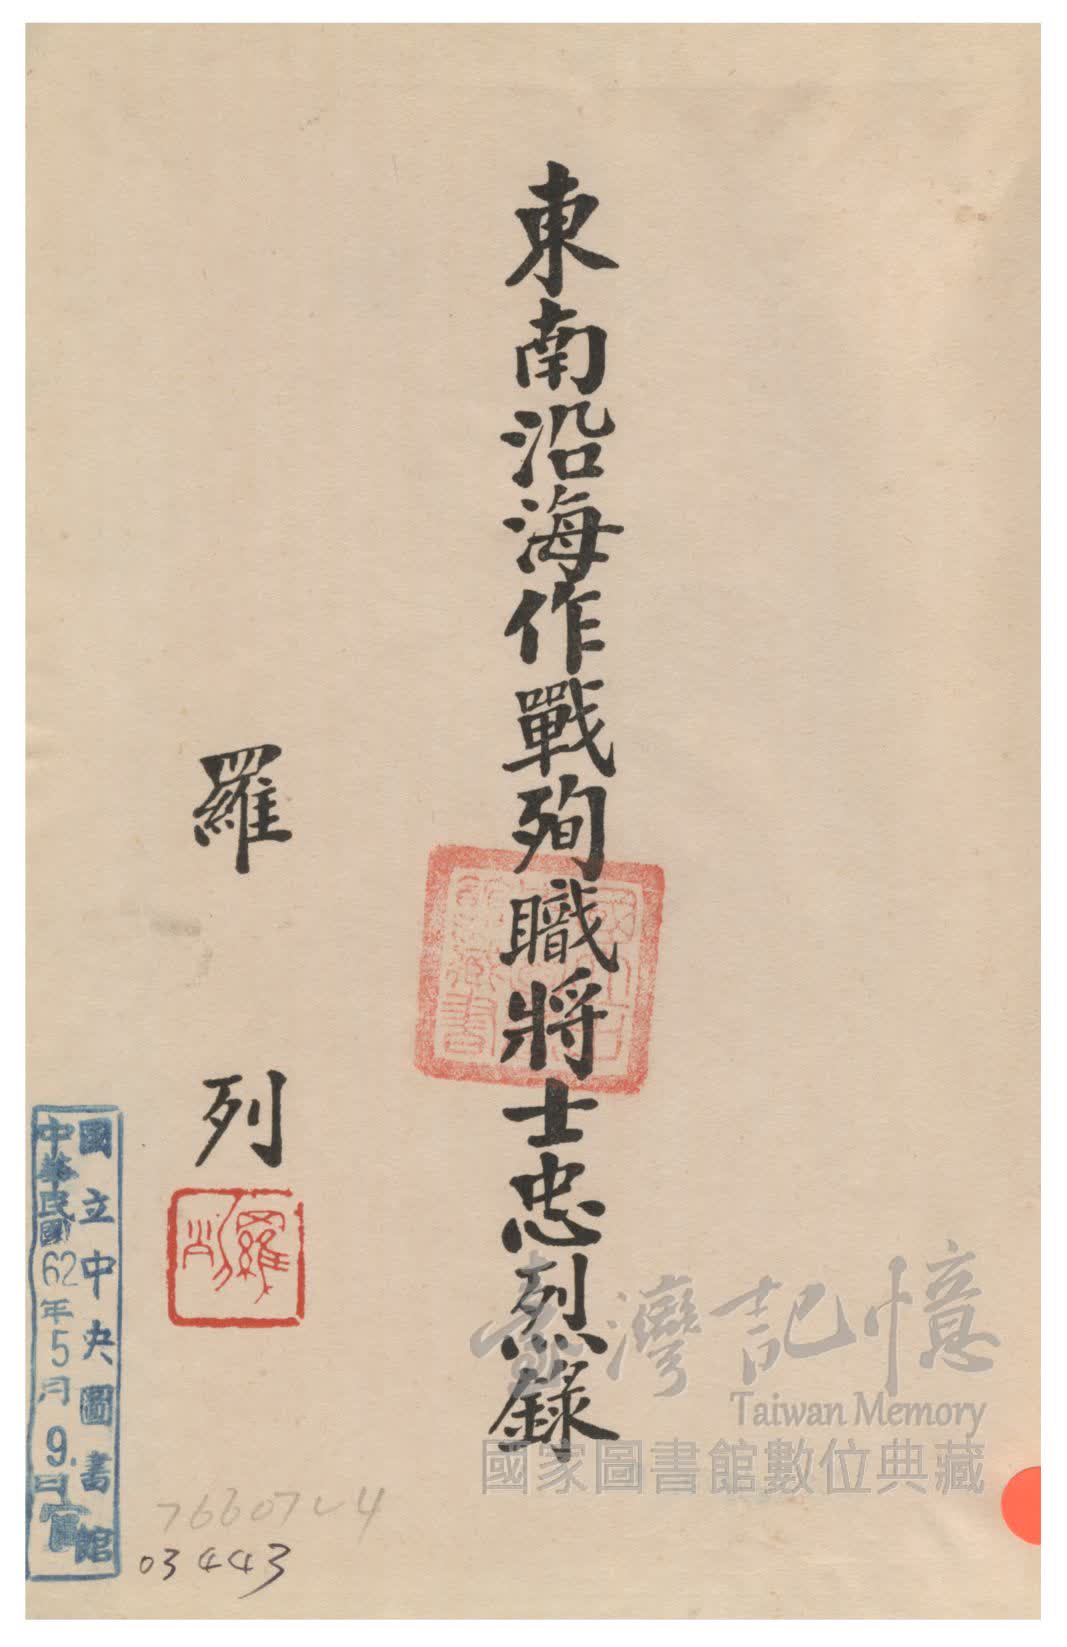 東南沿海作戰殉職將士忠烈錄
羅列
羅列
國立中央圖書館
中華民國62年5月9.日
臺灣記憶
Taiwan Memory
國家圖書館數位典藏
03443